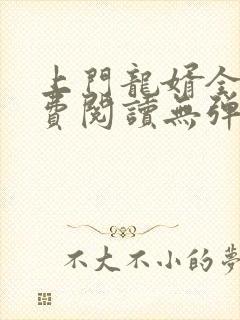 上門龍婿全
費閱讀無彈
不大不小的夢